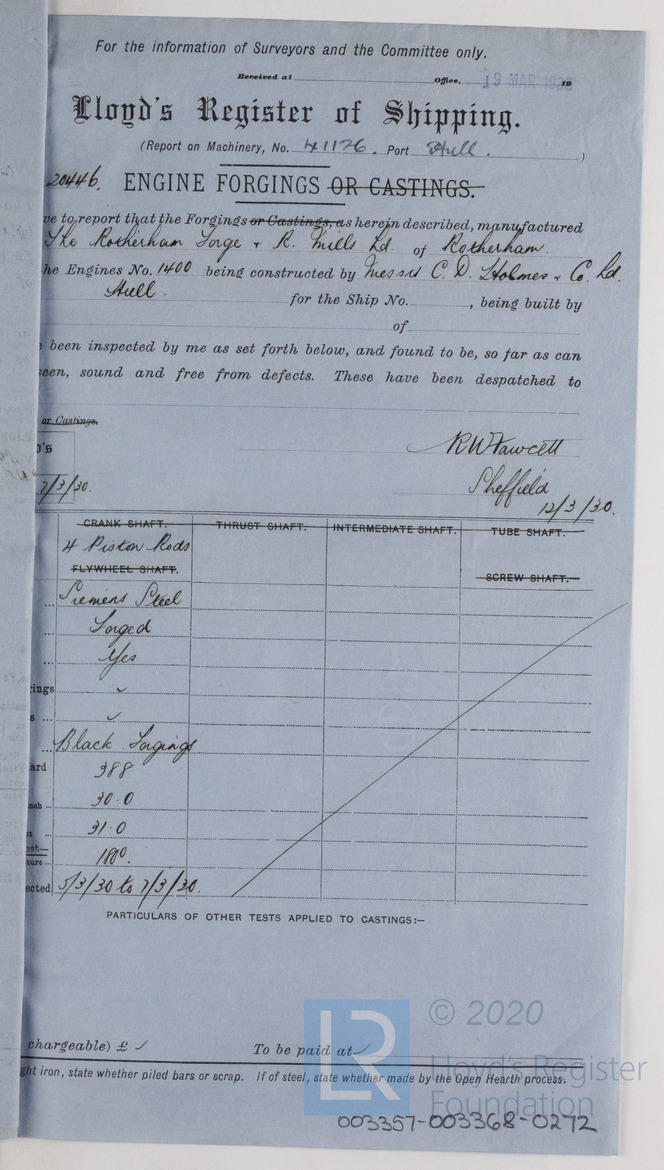 For the information of Surveyors and the Committee only.
Received at Office, 19 MAR 19
Lloyd's Register of Shipping.
(Report on Machinery, No. 41126. Port Hull.)
20446. ENGINE FORGINGS OR CASTINGS.
ve to report that the Forgings or Castings, as herein described, manufactured
The Rotherham Forge & R. Mills Ld. of Rotherham.
he Engines No. 1400 being constructed by Messrs C. D. Holmes & Co. Ld.
Hull. for the Ship No. , being built by
of
been inspected by me as set forth below, and found to be, so far as can
seen, sound and free from defects. These have been despatched to
or Castings.
D's
RW Fawcett
7/3/30.
Sheffield
12/3/30.
CRANK SHAFT. THRUST SHAFT. INTERMEDIATE SHAFT. TUBE SHAFT.
4 Piston Rods
FLYWHEEL SHAFT. SCREW SHAFT.
... Siemens Steel
... Forged
... Yes
ings ✓
s ... ✓
... Black Forgings
ard 388
nch 30.0
t 31.0
est—
ture 180°.
ected 5/3/30 to 7/3/30.
PARTICULARS OF OTHER TESTS APPLIED TO CASTINGS:—
chargeable) £ ✓ To be paid at ✓
ght iron, state whether piled bars or scrap. If of steel, state whether made by the Open Hearth process.
LR © 2020
Lloyd's Register
Foundation
003357-003368-0272